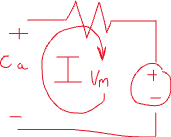 +
Ca
I
Vm
+
-
-